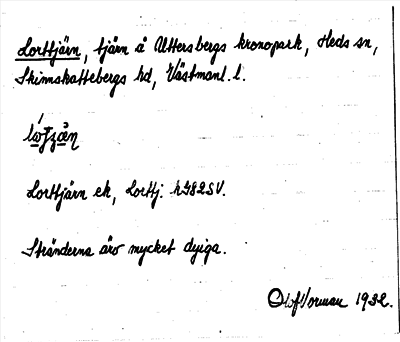 Lorttjärn, tjärn å Uttersbergs kronopark, Heds sn,
Skinnskattebergs hd, Västmanl. l.
Lorttjärn ek, Lorttj. h782SV.
Stränderna äro mycket dyiga.
Olof Norman 1932.